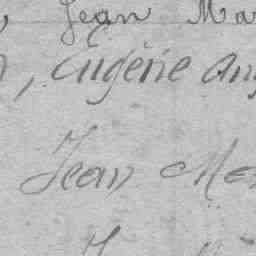 Jean Ma
, Eugénie An
Jean M